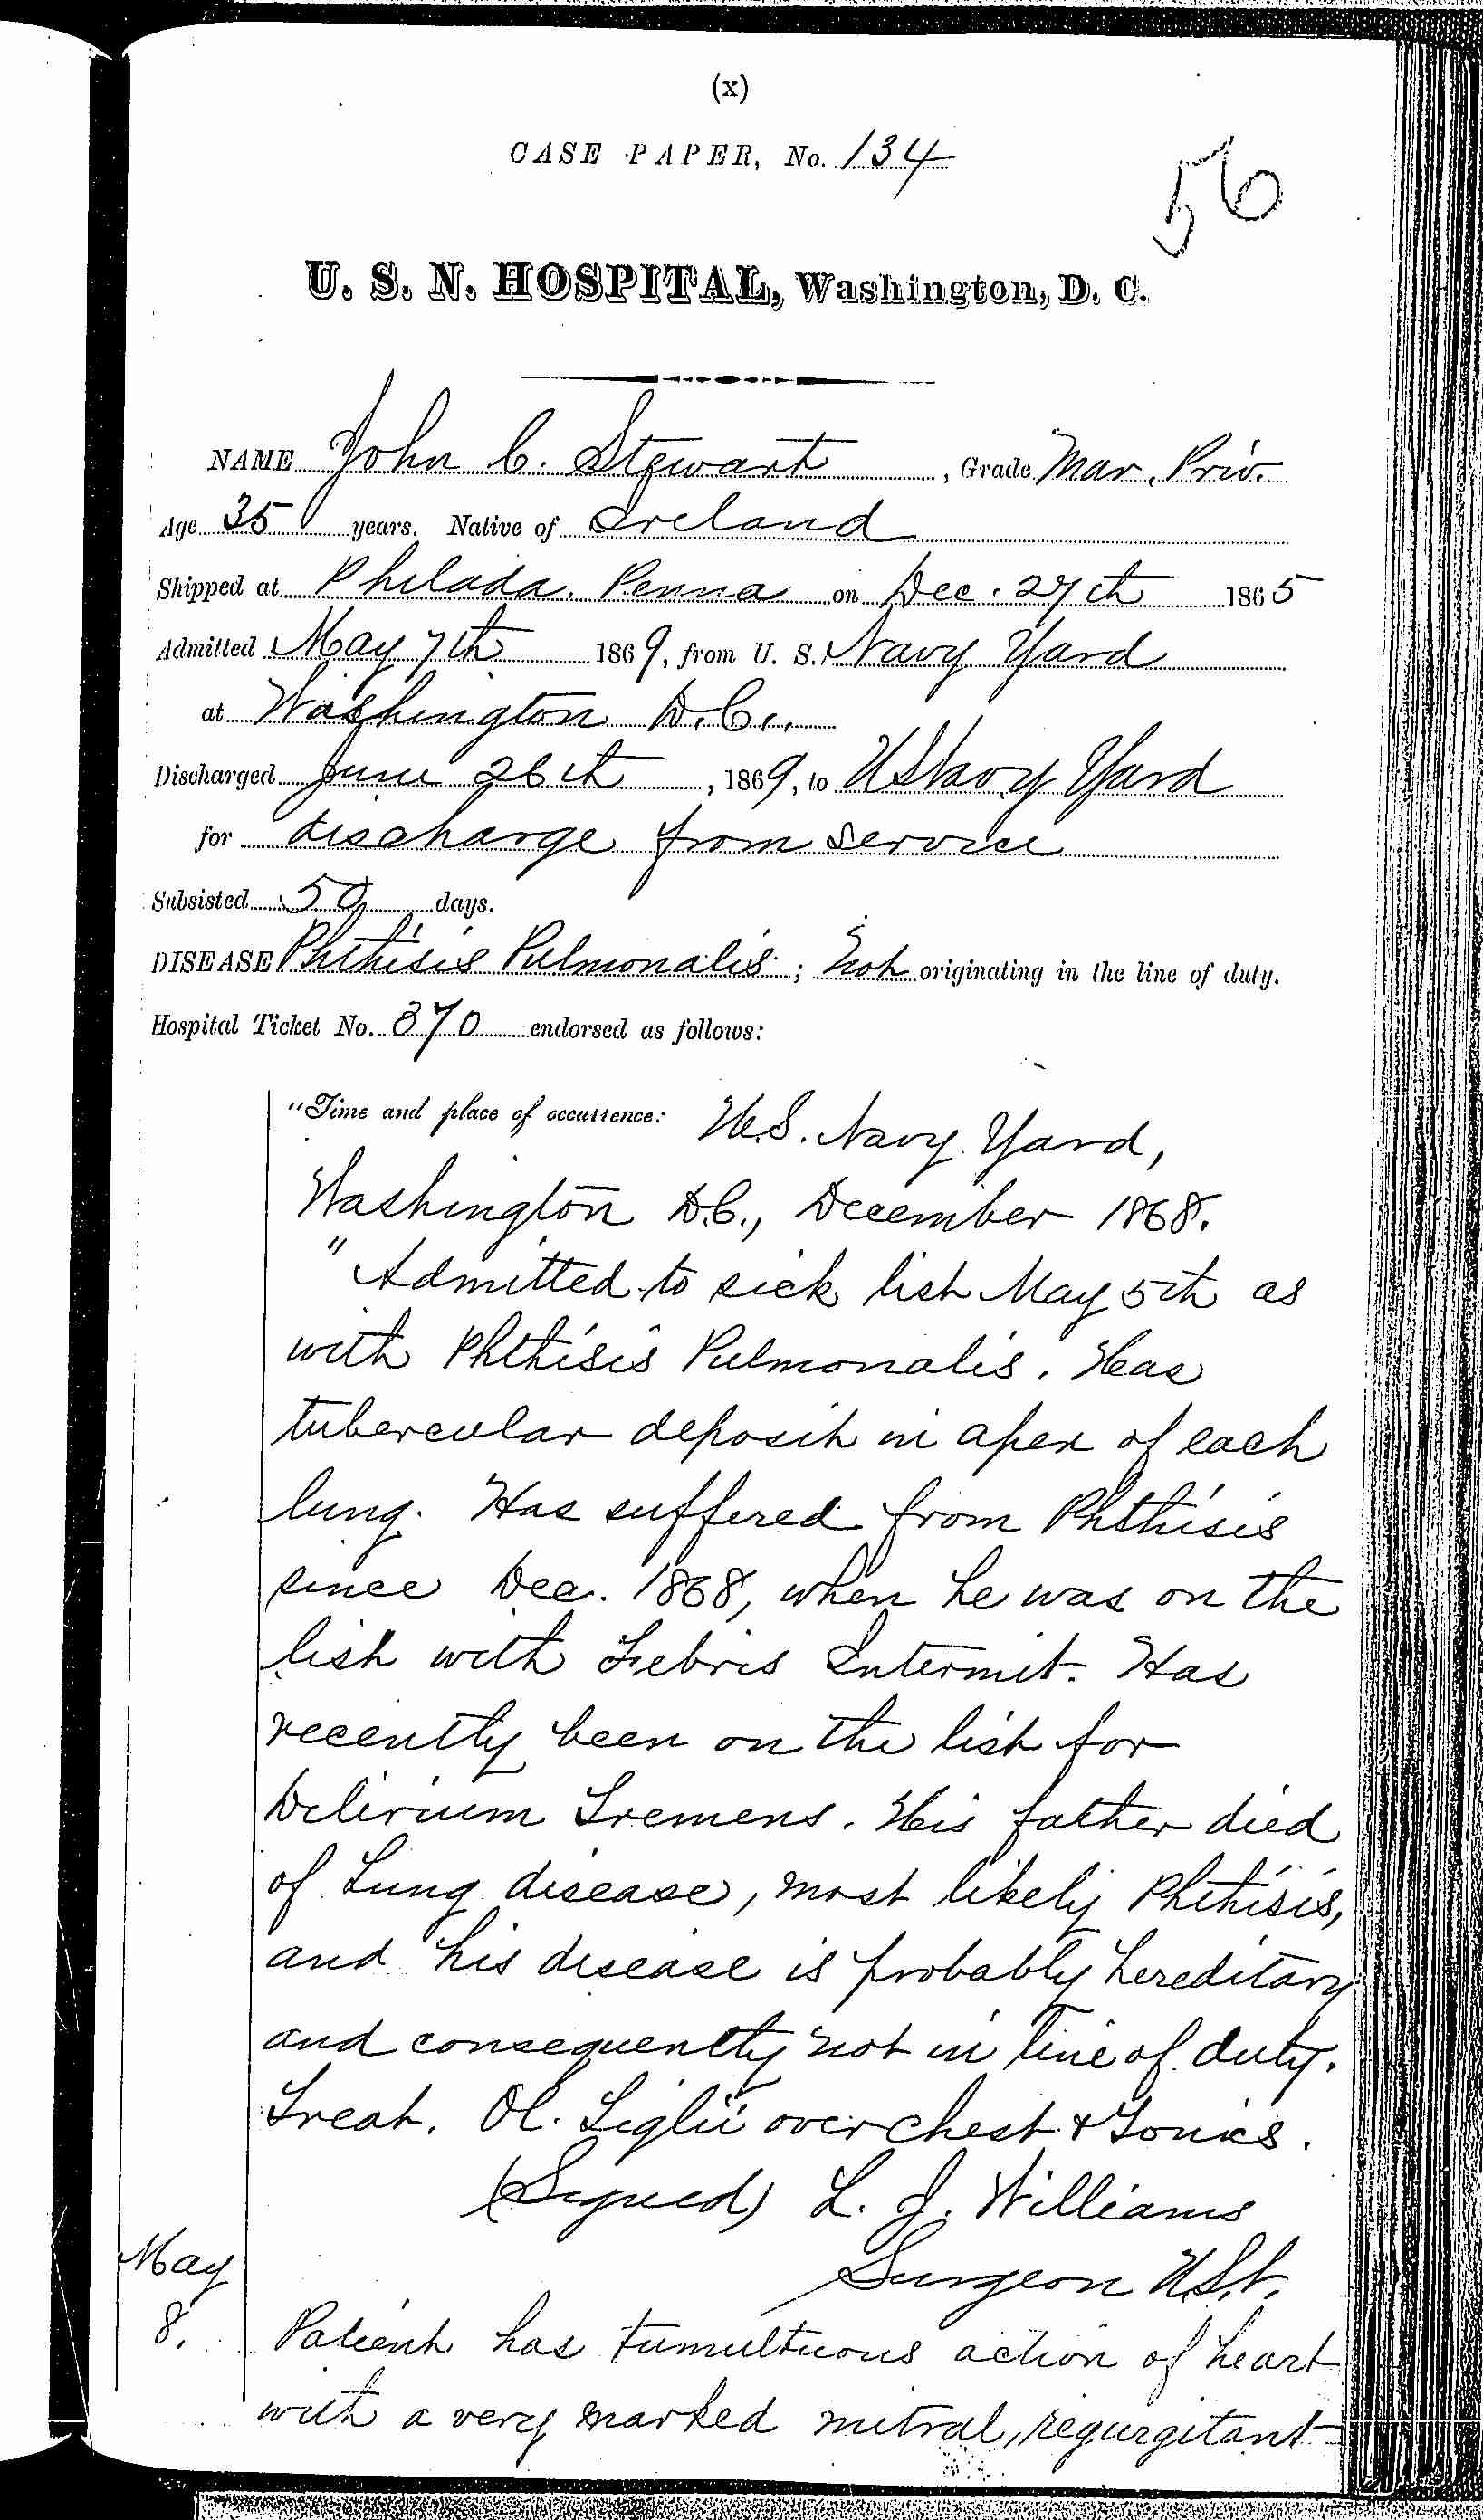 (x)
CASE PAPER, No. 134
56
U. S. N. HOSPITAL, Washington, D. C.
NAME John C. Stewart, Grade Mar. Priv.
Age 35 years. Native of Ireland
Shipped at Philada. Penna on Dec. 27th 1865
Admitted May 7th 1869, from U. S. Navy Yard
at Washington D.C.,
Discharged June 26th, 1869, to U S Navy Yard
for discharge from service
Subsisted 50 days.
DISEASE Phthisis Pulmonalis; Not originating in the line of duty.
Hospital Ticket No. 370 endorsed as follows:
"Time and place of occurrence: U.S. Navy Yard,
Washington D.C., December 1868.
"Admitted to sick list May 5th as
with Phthisis Pulmonalis. Has
tubercular deposit in apex of each
lung. Has suffered from Phthisis
since Dec. 1868, when he was on the
list with Febris Intermit. Has
recently been on the list for
Delirium Tremens. His father died
of Lung disease, most likely Phthisis,
and his disease is probably hereditary
and consequently not in line of duty.
Treat. Ol. Tiglii over chest & Tonics.
(Signed) L. J. Williams
Surgeon U.S.N.
May
8. Patient has tumultuous action of heart
with a very marked mitral, regurgitant